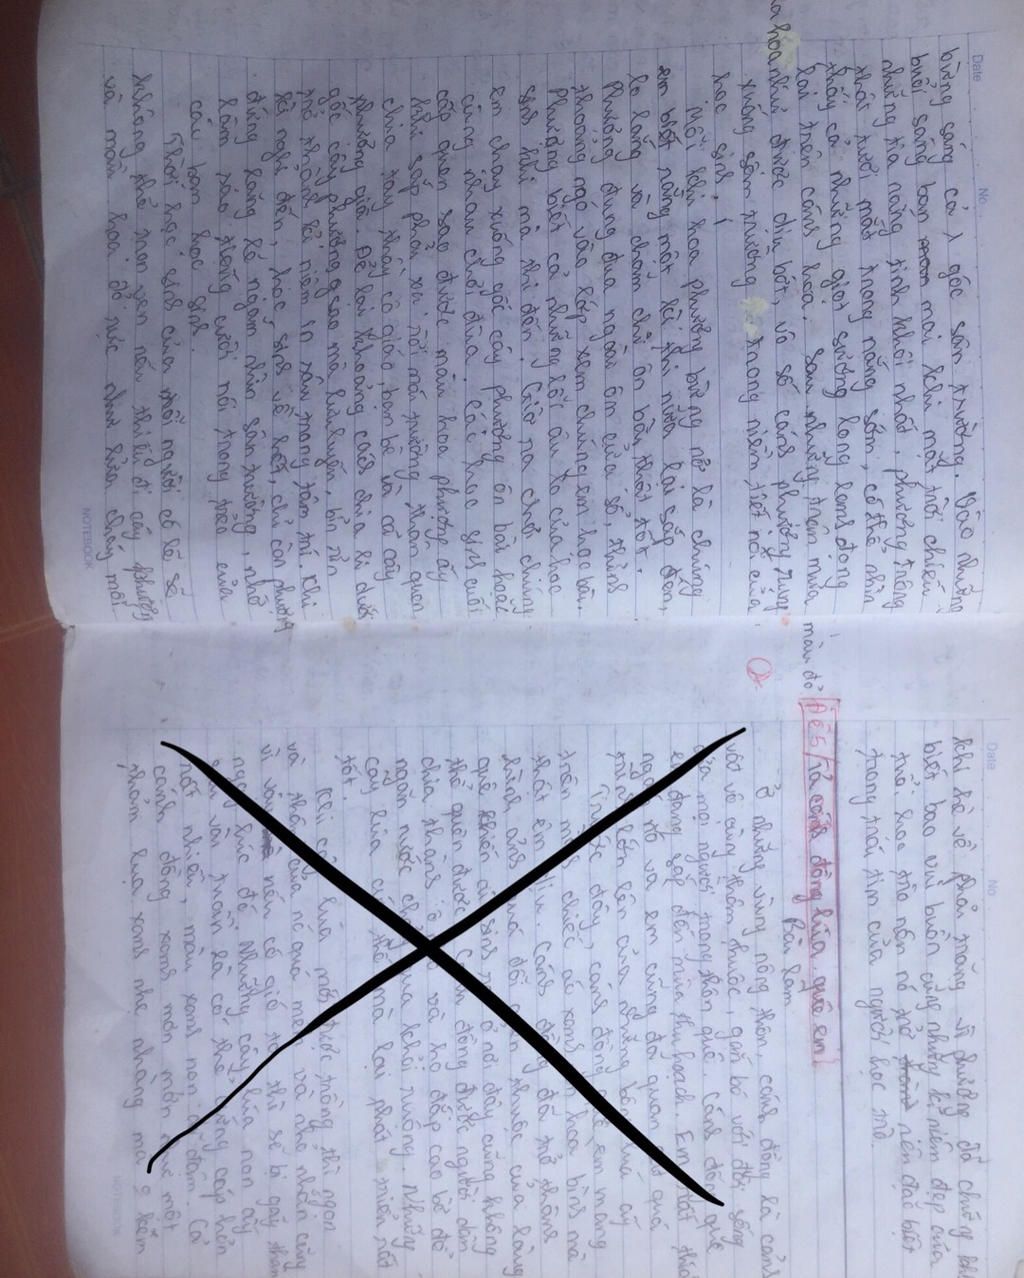 Date No.
bừng sáng cả 1 góc sân trường. Vào những
buổi sáng ban mai khi mặt trời chiếu
những tia nắng tinh khôi nhất, phượng trông
thật tươi mát trong nắng sớm, có thể nhìn
thấy cả những giọt sương long lanh đọng
lại trên cánh hoa. Sau những trận mưa màu đỏ
hoa như được dịu bớt, vô số cánh phượng rụng
xuống sân trường trong niềm tiết nối của
học sinh.
Mỗi khi hoa phượng bừng nở là chúng
em biết rằng một kì thi nữa lại sắp đến,
lo lắng và chăm chỉ ôn bài thật tốt.
Phượng đung đưa ngoài ôn cửa sổ, thỉnh
thoảng ngó vào lớp xem chúng em học bài.
Phượng biết cả những lốc âu lo của học
sinh khi mùa thi đến. Giờ ra chơi chúng
em chạy xuống gốc cây phượng ôn bài hoặc
cùng nhau chơi đùa. Các học sinh cuối
cấp quên sao được màu hoa phượng ấy
khi sắp phải xa rời mái trường thân quen,
chia tay thầy cô giáo, bạn bè và cả cây
phượng già. Để lại khoảng cách chia li dưới
gốc cây phượng, sao mà lưu luyến, bịn rịn
trở thành kỉ niệm in sâu trong tâm trí. Khi
kì nghỉ đến, học sinh về hết, chỉ còn phượng
đứng lặng lẽ ngắm nhìn sân trường, nhớ
lắm sao tiếng cười nói trong trẻo của
các bạn học sinh.
Thời học sinh của mỗi người có lẽ sẽ
không thể trọn vẹn nếu thiếu đi cây phượng
và màu hoa đỏ rực như lửa cháy mỗi
NOTEBOOK
Date No.
khi hè về phải chăng vì phượng đã chứng kh
biết bao vui buồn cùng những kỉ niệm đẹp của
tuổi học trò nên nó trở nên đặc biệt
trong trái tim của người học trò.
Đề 5/ Tả cánh đồng lúa quê em
Bài làm
Ở những vùng nông thôn, cánh đồng là cảnh
vật vô cùng thân thuộc, gắn bó với đời sống
của mọi người trong thôn quê. Cánh đồng quê
em đang sắp đến mùa thu hoạch. Em rất
ngắm nó và em cũng đã quan sát quá
trình lớn lên của những bông lúa ấy
Trước đây, cánh đồng quê em mang
trên mình chiếc áo xanh hoa bình mà
thật êm dịu. Cánh đồng đã trở thành
hình ảnh quá đỗi thân thuộc của làng
quê khiến ai sinh ra ở nơi đây cũng không
thể quên được. Cánh đồng được người dân
chia thành ô và họ đắp cao bờ để
ngăn nước chảy qua khỏi ruộng. Những
cây lúa cứ thế mà lại phát triển rất
tốt.
Khi cây lúa mới được trồng thì ngọn
và thân của nó quá mềm và nhỏ nhắn cũng
vì vậy nên có gió to thì sẽ bị gãy
ngay lúc đó. Những cây lúa non ấy
vài tuần là có thể cứng cáp hơn
rất nhiều, màu xanh non đậm. Cả
cánh đồng xanh mơn mởn như một
thảm lụa xanh nhẹ nhàng mà
NOTEBOOK